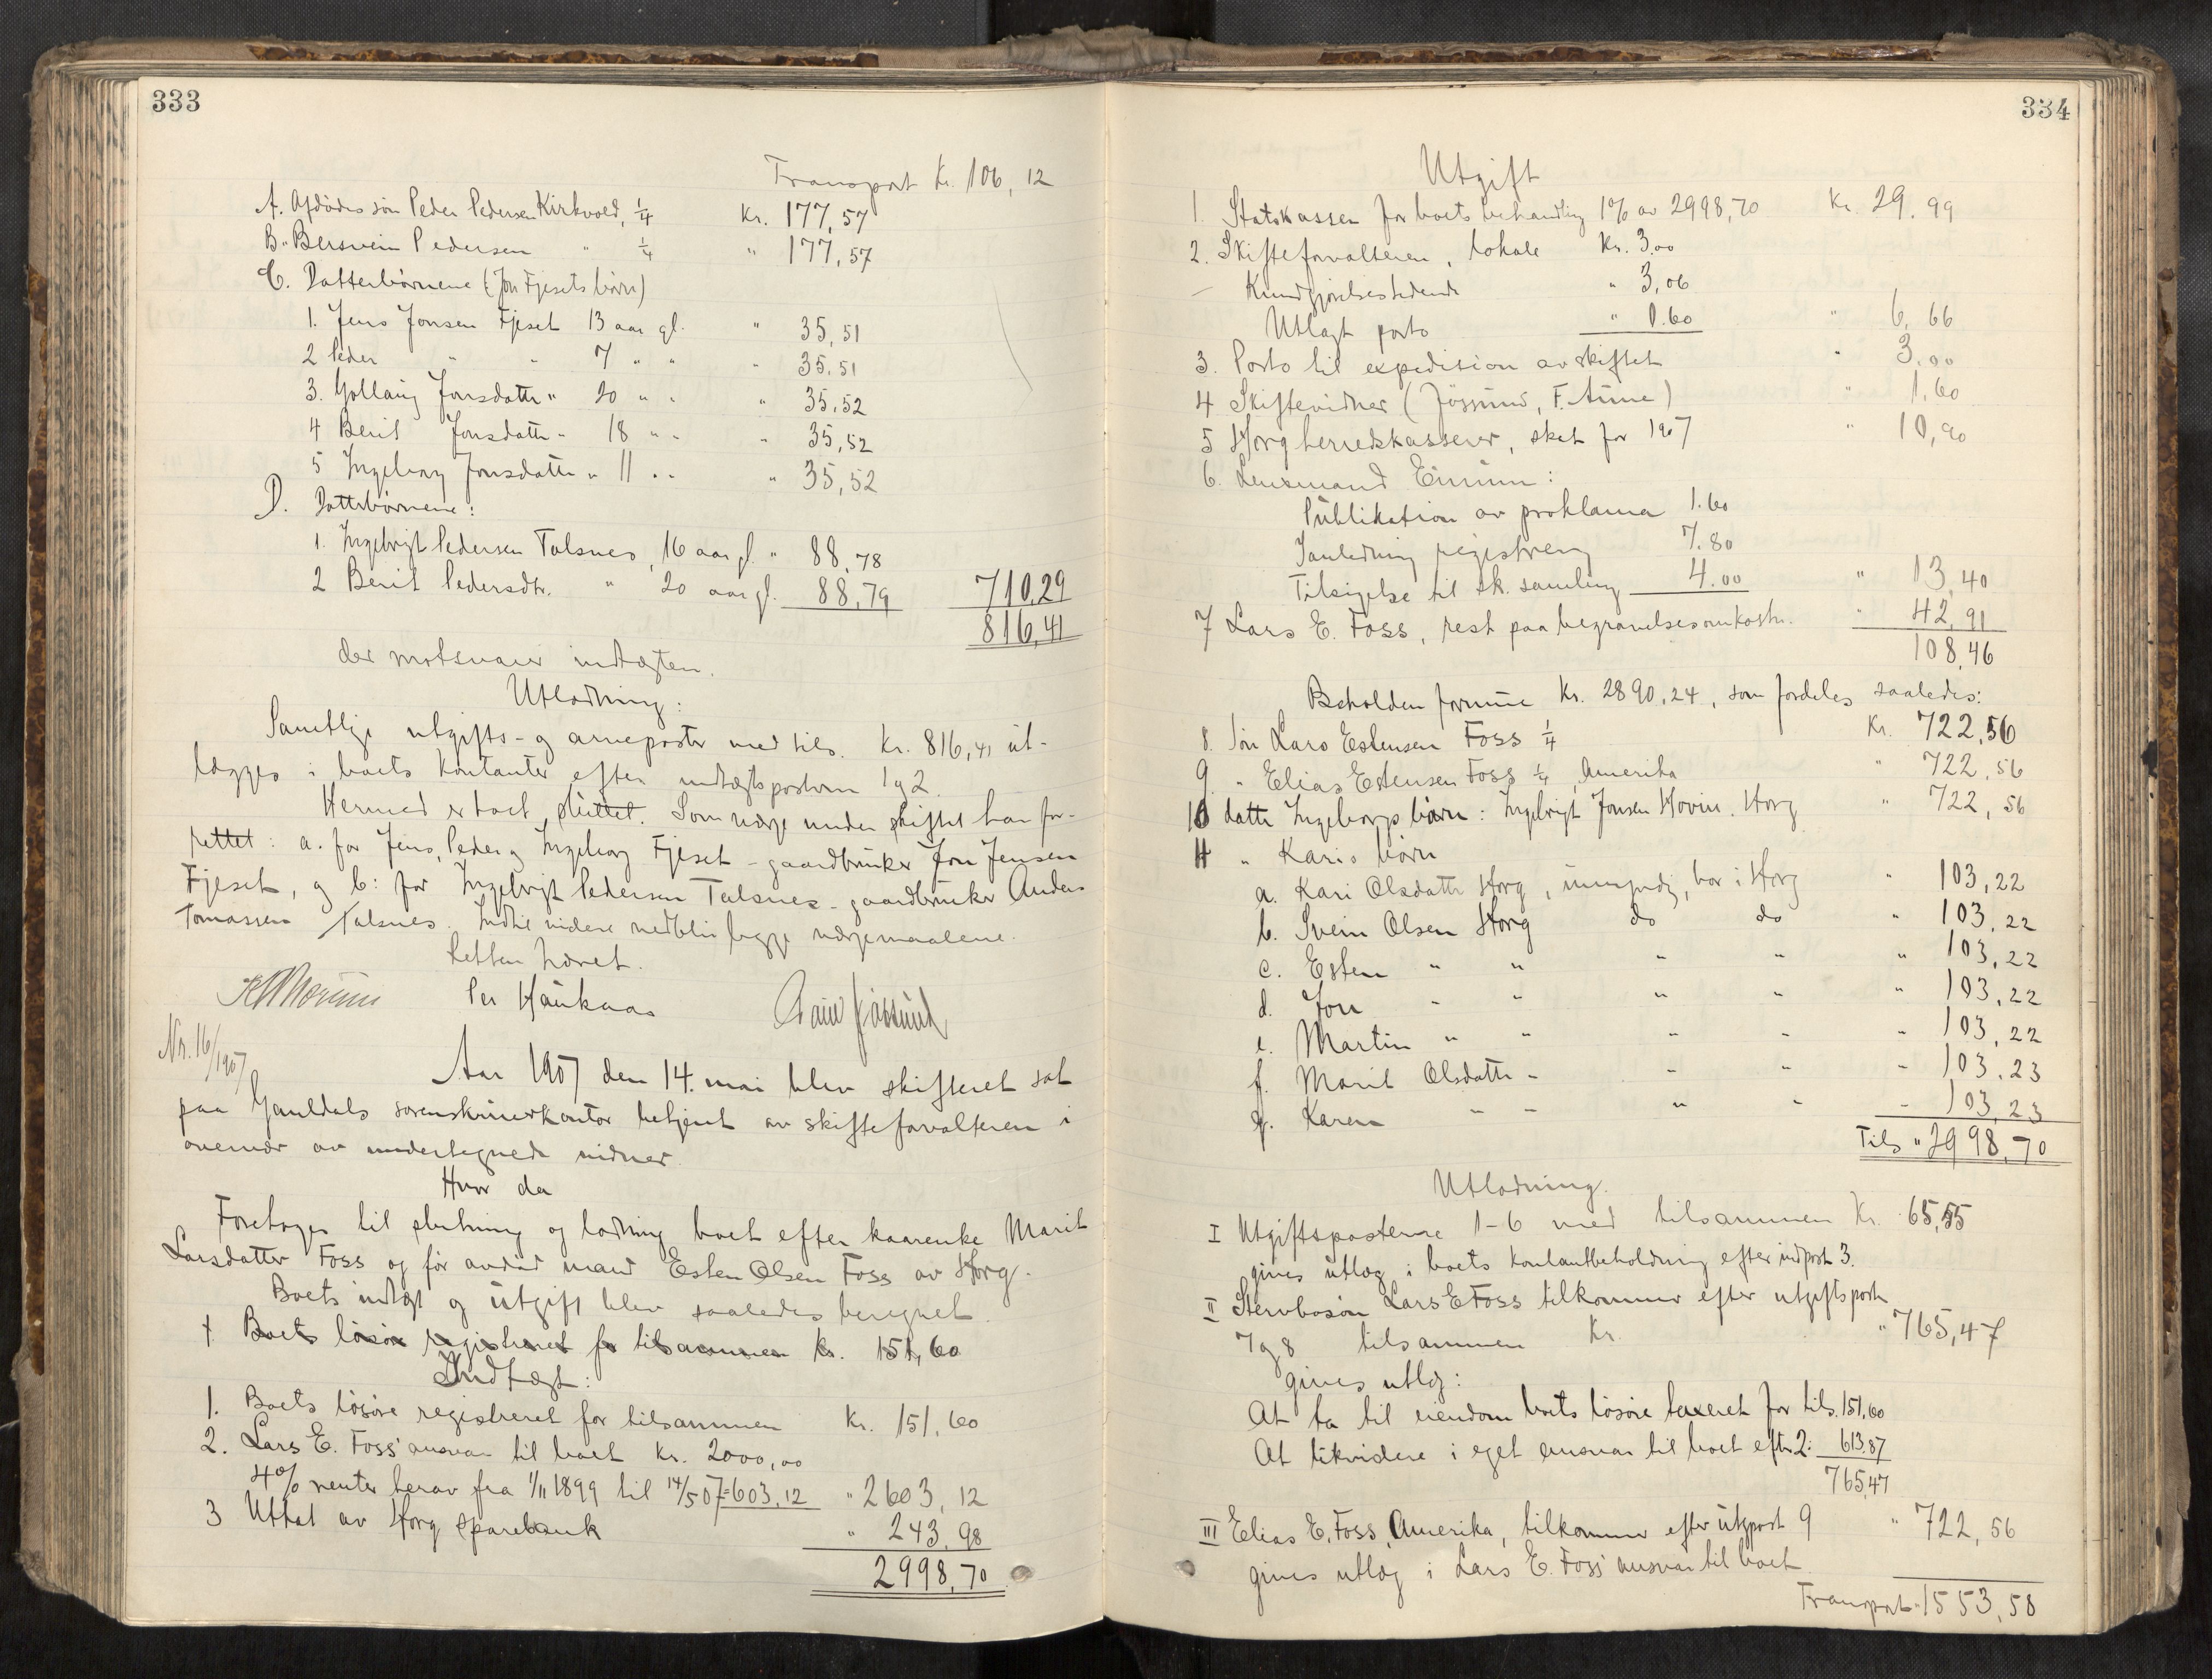 333
Transport Kr. 106,12
A. Afdødes søn Peder Pedersen Kirkvold, 1/4 Kr. 177,57
B. " Bersvein Pedersen " 1/4 " 177,57
C. Datterbørnene (Jon Fjesets børn)
1. Jens Jonsen Fjeset 13 aar gl. " 35,51
2 Peder " " 7 " " " 35,51
3. Gollaug Jonsdatter " 20 " " " 35,52
4 Berit Jonsdatter " 18 " " " 35,52
5 Ingeborg Jonsdatter " 11 " " " 35,52
D. Datterbørnene:
1. Ingebrigt Pedersen Talsnes, 16 aar gl. " 88,78
2 Berit Pedersdtr. " 20 aar gl. 88,79 710,29
816,41
der motsvarer indtægten.
Utlodning:
Samtlige utgifts- og arveposter med tils. Kr. 816,41 ut-
lægges i boets kontanter efter indtægtsposterne 1 og 2.
Hermed er boet sluttet. Som værge under skiftet har for-
rettet: a. for Jens, Peder og Ingeborg Fjeset - gaardbruker Jon Jensen
Fjeset, og b: for Ingebrigt Pedersen Talsnes - gaardbruker Anders
Tomassen Talsnes. Indtil videre vedblir begge værgemaalene.
Retten hævet.
Per Haukaas
Nr. 16/1907
Aar 1907 den 14. mai blev skifteret sat
paa Gauldals sorenskriverkontor betjent av skifteforvalteren i
overvær av undertegnede vidner.
Hvor da
Foretoges til slutning og lodning boet efter kaarenke Marit
Larsdatter Foss og før avdød mand Esten Olsen Foss av Horg.
Boets indtægt og utgift blev saaledes beregnet.
1 Boets løsøre registreret for tilsammen kr. 151,60
Indtægt:
1. Boets løsøre registreret for tilsammen Kr. 151,60
2. Lars E. Foss' ansvar til boet Kr. 2000,00
4% renter herav fra 1/11 1899 til 14/5 07 = 603,12 " 2603,12
3 Uttat av Horg sparebank " 243,98
2998,70
334
Utgift
1. Statskassen for boets behandling 1% av 2998,70 Kr. 29.99
2. Skifteforvalteren, lokale Kr. 3,00
Kundgjørelsestidende " 3,06
Utlagt porto " 0.60 " 6,66
3. Porto til expedition av skiftet " 3,00
4 Skiftevidner (Jøssund, F. Aune) " 1,60
5 Horg herredskasserer, skat for 1907 " 10,90
6. Lensmand Einum:
Publikation av proklama 1.60
I anledning registrering 7.80
Tilsigelse til sk. samling 4.00 " 13,40
7 Lars E. Foss, rest paa begravelsesomkostn. " 42,91
108,46
Beholden formue Kr. 2890,24, som fordeles saaledes:
8. Søn Lars Estensen Foss 1/4 Kr. 722,56
9. " Elias Estensen Foss 1/4, Amerika " 722,56
10 datter Ingeborgs børn: Ingebrigt Jonsen Hovin, Horg " 722,56
11 " Karis børn
a. Kari Olsdatter Horg, umyndig, bor i Horg " 103,22
b. Svein Olsen Horg do do " 103,22
c. Esten " " " " " 103,22
d. Jon " " " " " 103,22
e. Martin " " " " " 103,22
f. Marit Olsdatter " " " " 103,23
g. Karen " " " " " 103,23
Tils " 2998,70
Utlodning.
I Utgiftsposterne 1-6 med tilsammen Kr. 65,55
gives utlæg i boets kontantbeholdning efter indpost 3.
II Stervbosøn Lars E Foss tilkommer efter utgiftspost
7 og 8 tilsammen Kr. " 765,47
gives utlæg:
At ta til eiendom boets løsøre taxeret for tils. 151,60
At likvidere i eget ansvar til boet efter 2: 613.87
765,47
III Elias E. Foss, Amerika, tilkommer efter utgpost 9 " 722,56
gives utlæg i Lars E. Foss' ansvar til boet.
Transport " 1553,58